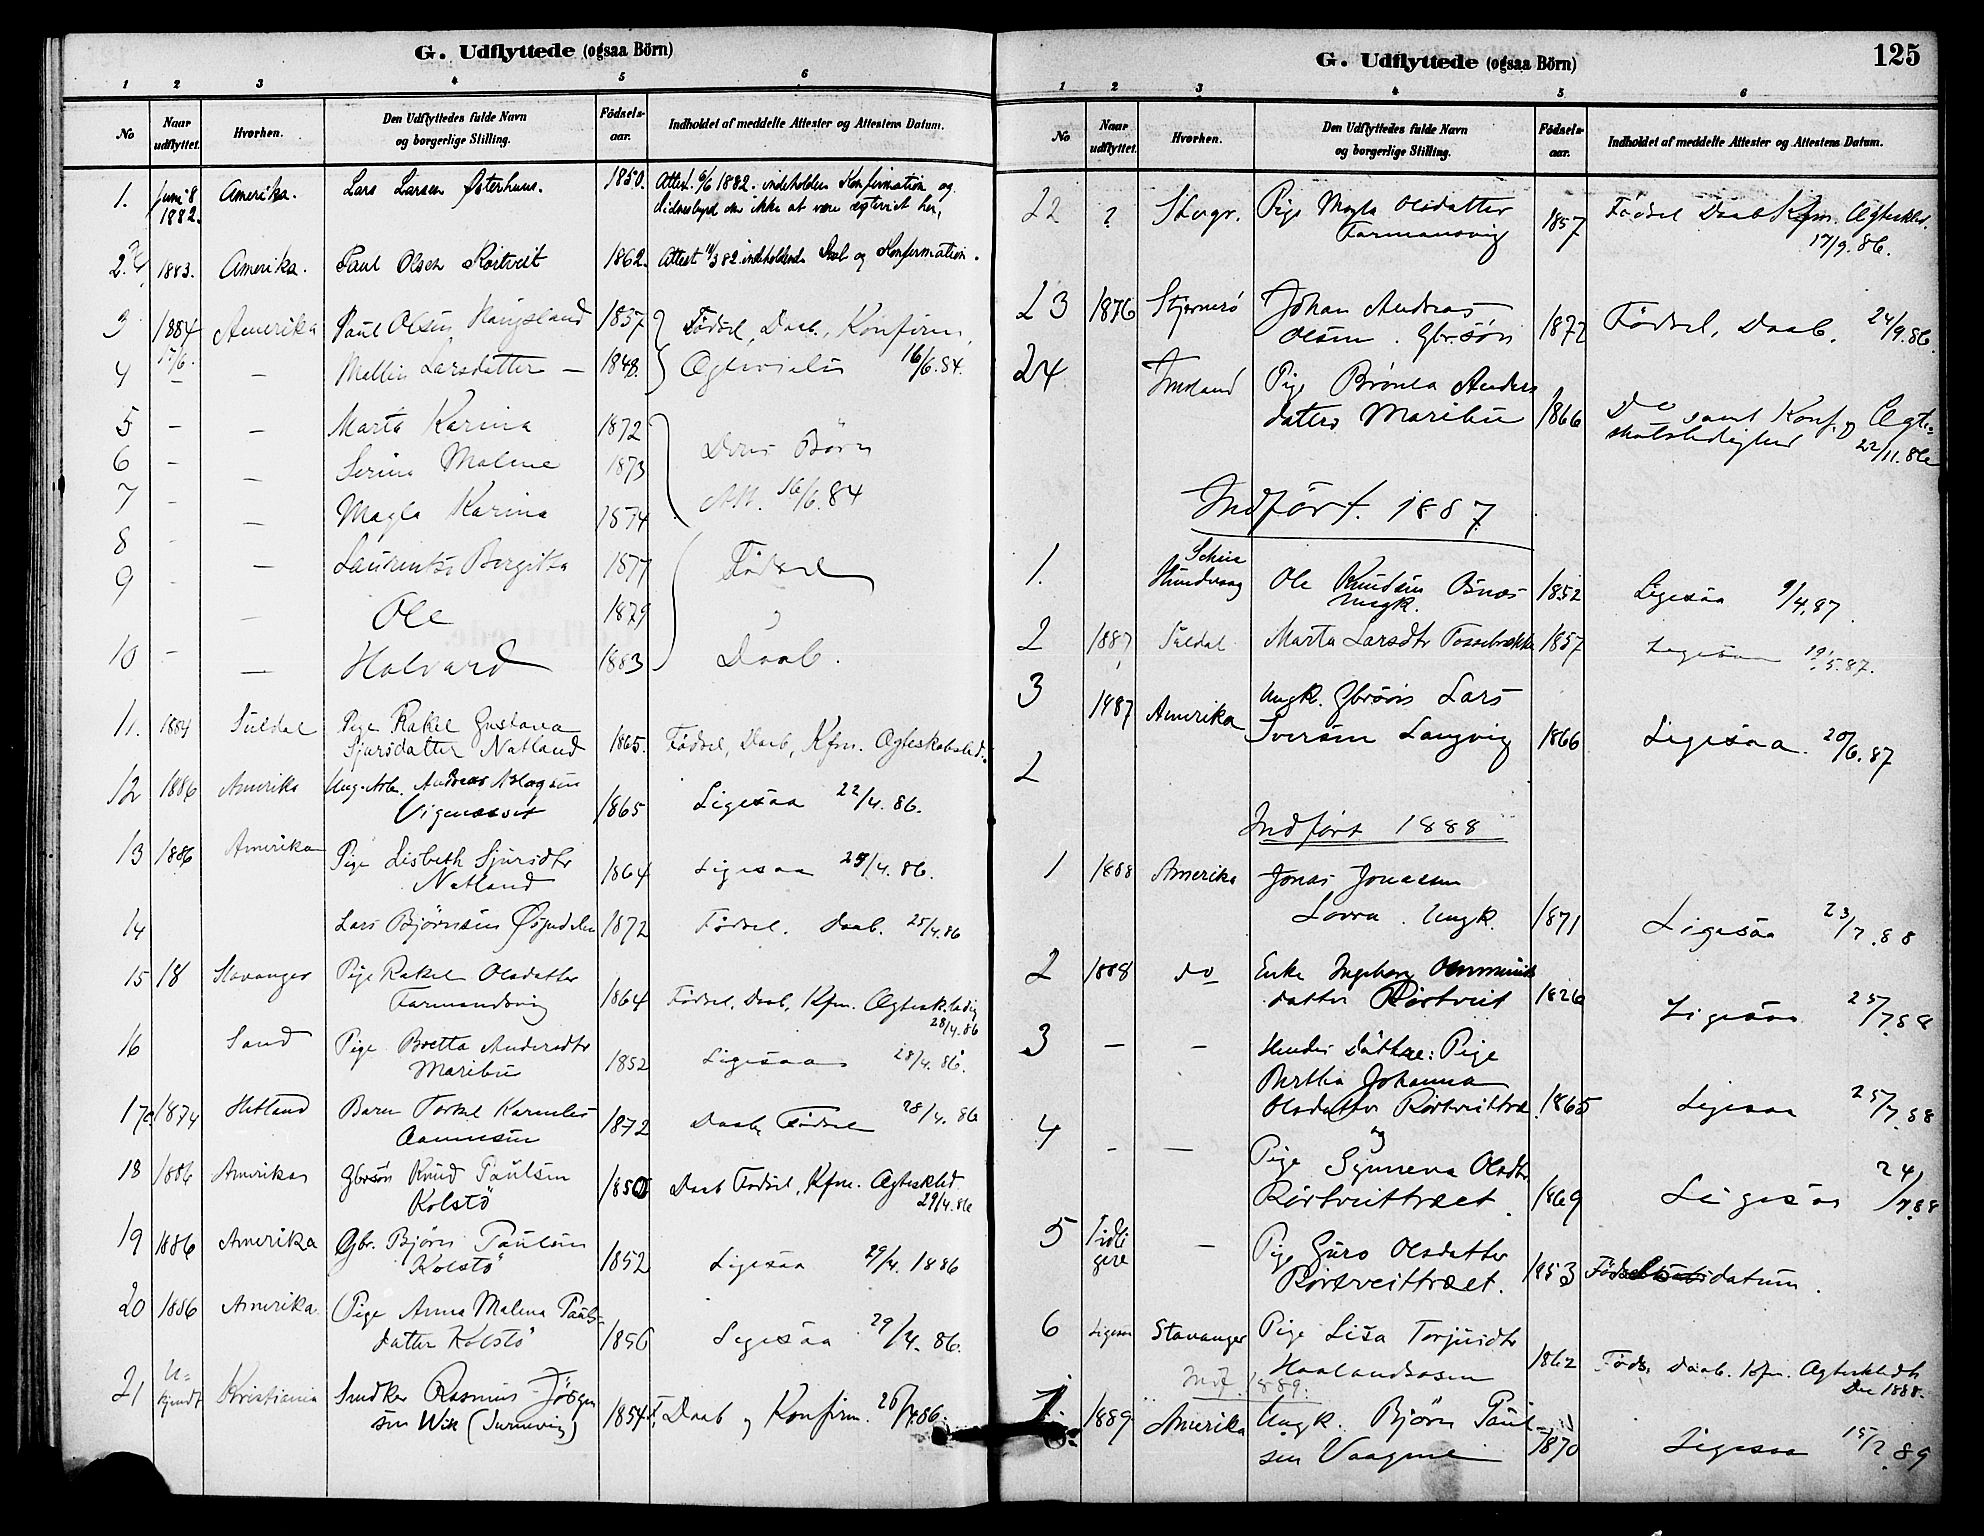 G. Udflyttede (ogsaa Börn)
1 2 3 4 5 6
No Naar udflyttet. Hvorhen. Den Udflyttedes fulde Navn og borgerlige Stilling. Födsels-aar. Indholdet af meddelte Attester og Attestens Datum.
1. Juni 8 1882. Amerika. Lars Larsen Østerhuus. 1850. Attest. 6/6 1882. indeholder Konfirmation og
Vidnesbyrd om ikke at være ægteviet her,
2. 1883. Amerika. Paul Olsen Rørtveit 1862. Attest 11/3 82. indholdende Daab og Konfirmation.
3 1884 17/6. Amerika Paul Olsen Haugsland 1857 Fødsel, Daab, Konfirm,
4 — — Mallin Larsdatter — 1848. Ægtevielse 16/6.84.
5 — — Marta Karina 1872
6 — — Serine Malene 1873 Deres Børn
7 — — Magla Karina 1874 Att. 16/6.84
8 — — Laurentse Bergitha 1877 Fødsel
9 — — Ole 1879
10 — — Halvard 1883 Daab.
11. 1884 Suldal Pige Rakel Gustava
Sjursdatter Natland 1865. Fødsel, Daab, Kfm. Ægteskabsled.
12 1886 Amerika Ung. Arb. Andreas Aslagsen
Vigenæsset 1865 Ligesaa 22/4. 86.
13 1886 Amerika Pige Lisbeth Sjursdtr
Natland 1864 Ligesaa 25/4. 86.
14 Lars Bjørnsen 1872 Fødsel. Daab. 25/4.86
15 18 Stavanger Pige Rakel Olsdatter
Tarmandsvig 1864 Fødsel, Daab, Kfm. Ægtesk.ledig
28/4.86
16 Sand Pige Bretta Andersdtr
Maribu 1852 Ligesaa 28/4. 86.
17 1874 Hetland Barn Torkel Kornelius
Aanensen 1872 Daab, Fødsel 28/4. 86
18 1886 Amerika Gbrsøn Knud Paulsen
Kolstö 1850 Daab Fødsel, Kfm. Ægteskled
29/4.86
19 1886 Amerika Gbr. Bjørn Paulsen
Kolstö 1852 Ligesaa 29/4. 1886
20 1886 Amerika. Pige Anna Malena Pauls-
datter Kolstö 1856 Ligesaa 29/4. 86.
21 U-kjendt Kristiania Snedker Rasmus Jörgen
sen Wik 1854 F, Daab og Konfirm. 26/7.86.
G. Udflyttede (ogsaa Börn) 125
1 2 3 4 5 6
No Naar udflyttet. Hvorhen. Den Udflyttedes fulde Navn og borgerlige Stilling. Födsels-aar. Indholdet af meddelte Attester og Attestens Datum.
22 ? Stvgr. Pige Magla Olsdatter
Tarmansvig 1857 Fødsel Daab Kfm. Ægteskled.
17/9. 86.
23 1876 Stjernerö Johan Andreas
Olsen. Gbr.søn 1872 Fødsel, Daab. 24/9.86.
24 Imsland Pige Brönla Anders
datter Maribu 1866 Do samt Konf. og Ægte-
skabsledighed 22/11.86
Indført. 1887
1. Hundvaag Ole Knudsen Osnes
Ungk. 1852 Ligesaa 9/4.87.
2 1887 Suldal Marta Larsdtr Fossebrække 1857 Ligesaa 19/5.87.
3 1887 Amerika Ungk. Gbrsøn Lars
Iversen Langvig 1866 Ligesaa. 20/6.87
2
Indført 1888
1 1888 Amerika Jonas Jonasen
Lovra. Ungk. 1871 Ligesaa 23/7.88
2 1888 do Enke Ingeborg Ommunds
datter Rörtveit 1826 Ligesaa 25/7.88
3 — — Hendes Döttre: Pige
Bertha Johanna
Olsdatter Rörtveittræ. 1865 Ligesaa 25/7.88
4 — — og
Pige Synneva Olsdtr
Rörtveittræet. 1869 Ligesaa 24/7.88
5 Tidli gere — Pige Guro Olsdatter
Rörtveittræet. 1853 Fødselsdatum.
6 Ligesaa Stavanger Pige Lisa Torjusdtr
Haalandsosen 1862 Føds. Daab. Kfm. Ægteskledh
Dec 1888.
Indf. 1889.
1. 1889 Amerika Ungk. Bjørn Paul-
sen Vaagene 1870 Ligesaa 15/2.89